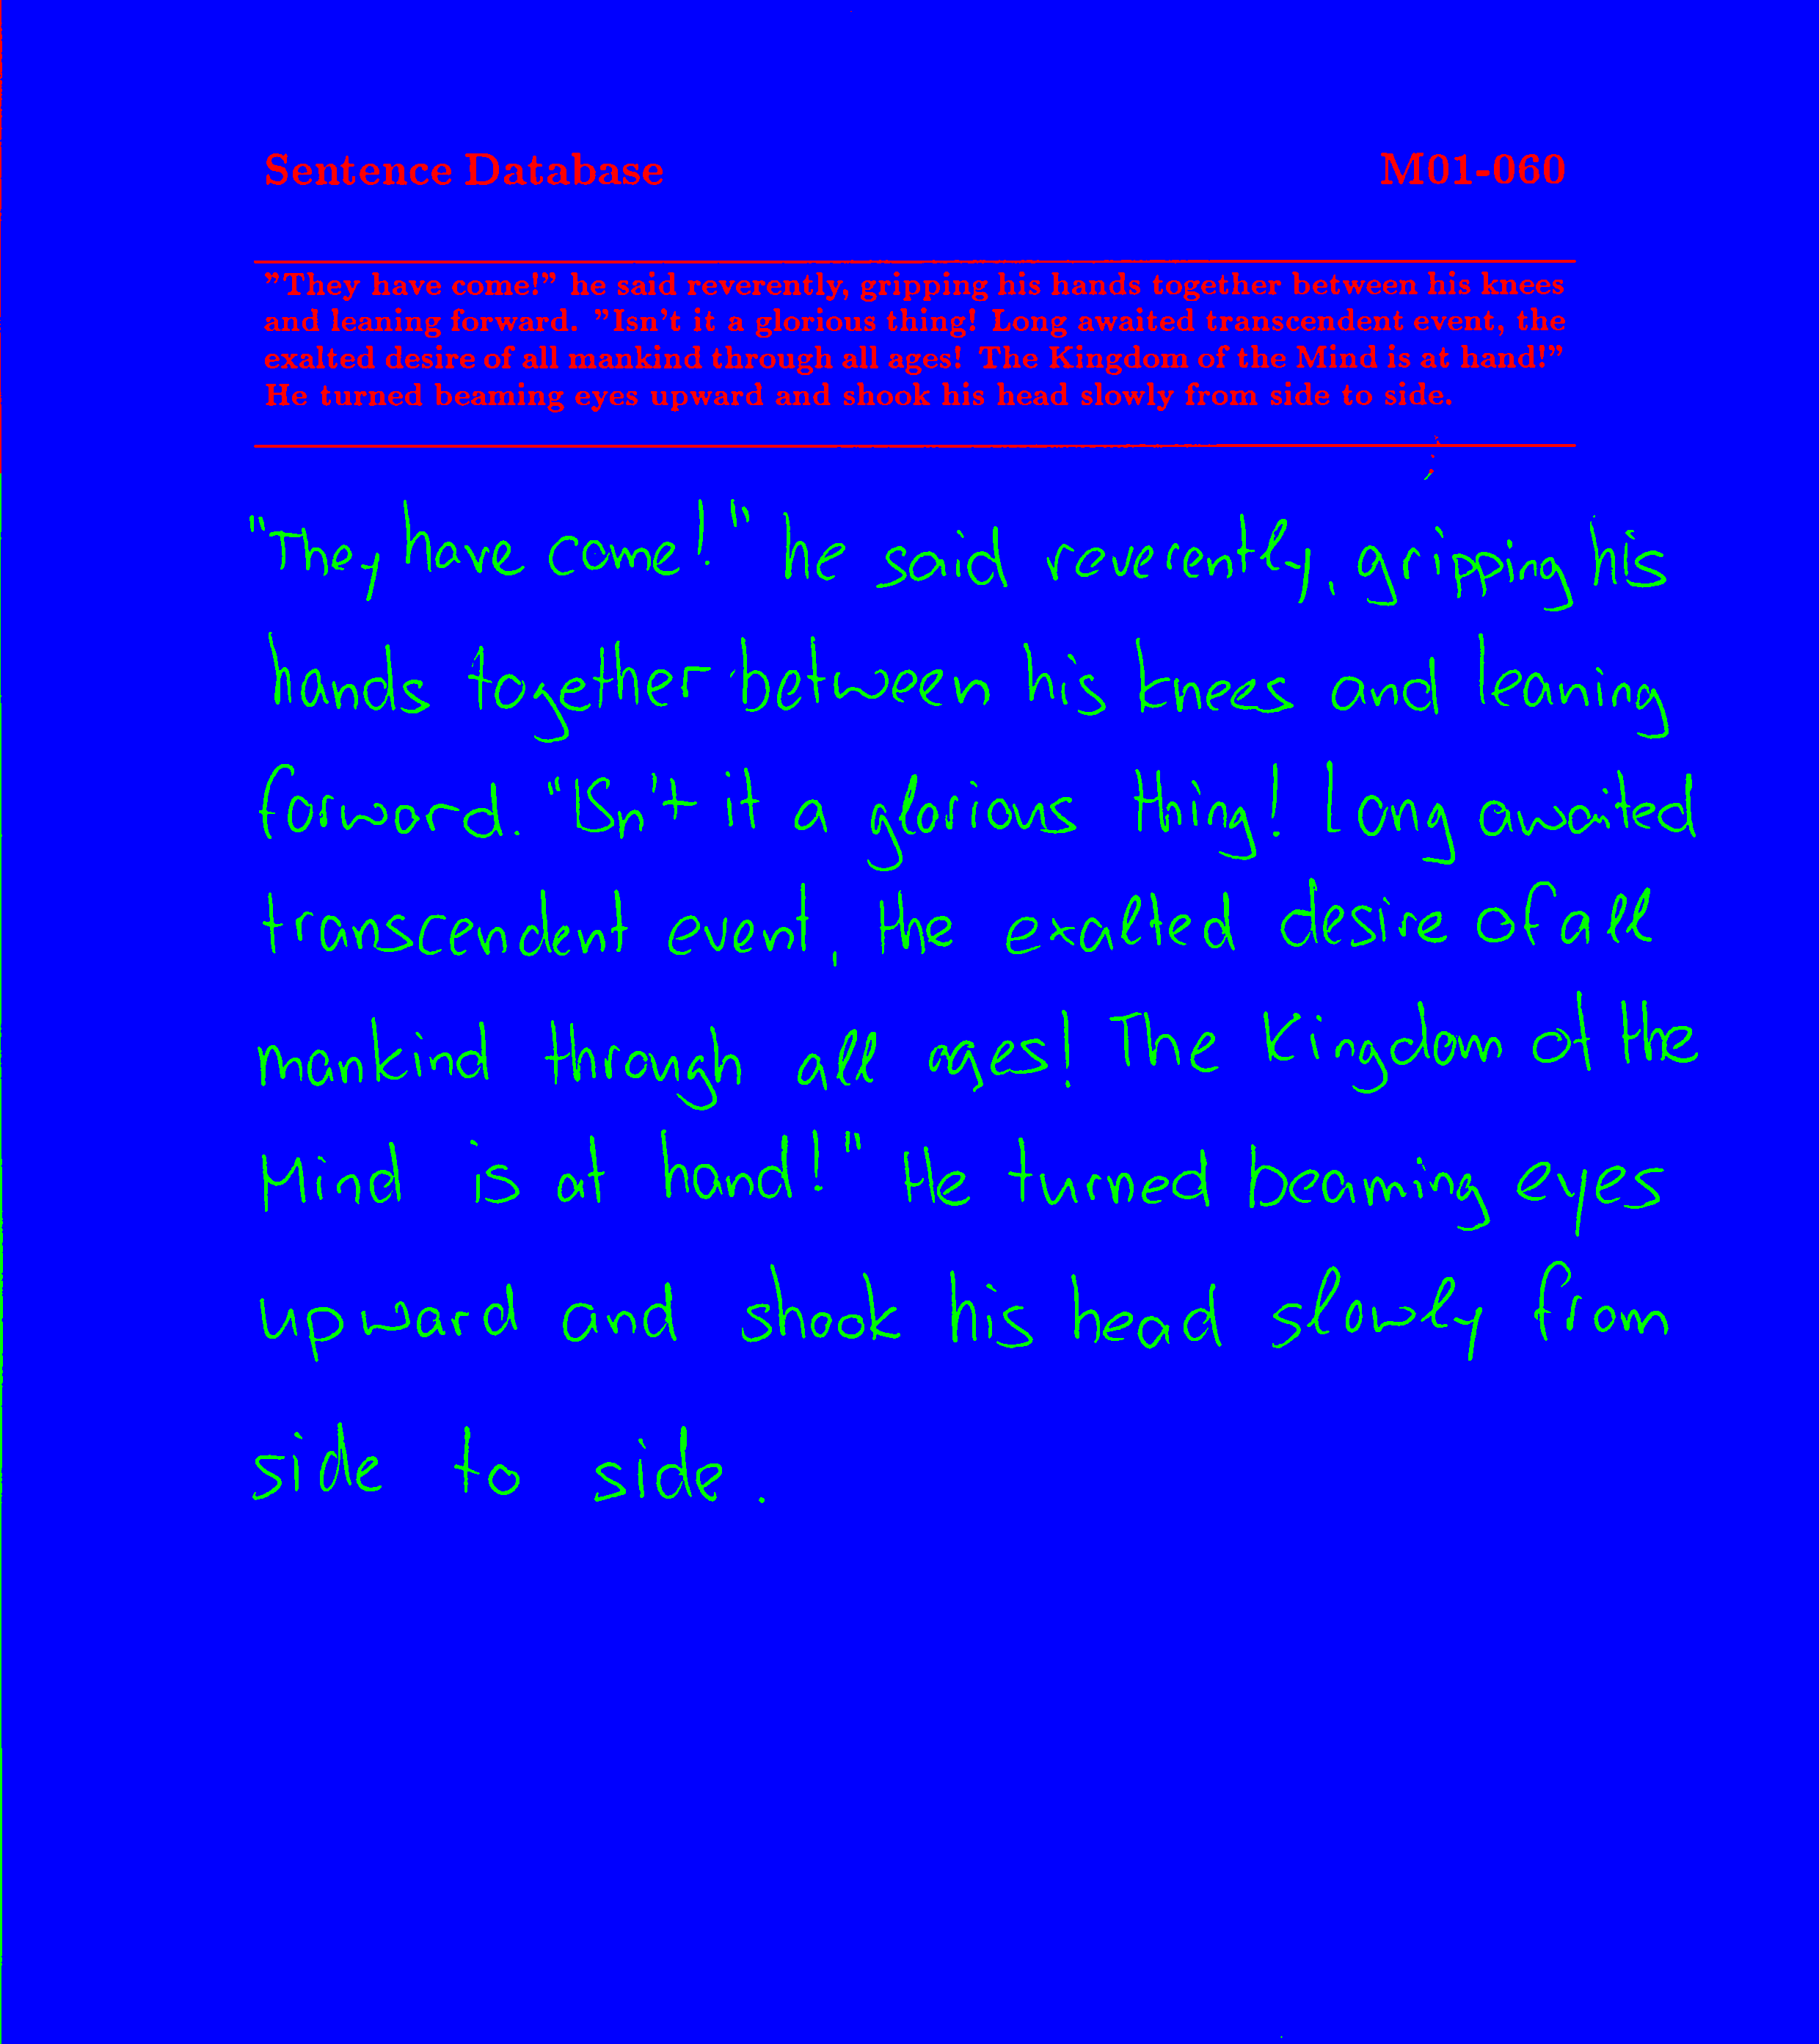 Sentence Database M01-060
"They have come!" he said reverently, gripping his hands together between his knees
and leaning forward. "Isn't it a glorious thing! Long awaited transcendent event, the
exalted desire of all mankind through all ages! The Kingdom of the Mind is at hand!"
He turned beaming eyes upward and shook his head slowly from side to side.
"They have come!" he said reverently, gripping his
hands together between his knees and leaning
forward. "Isn't it a glorious thing! Long awaited
transcendent event, the exalted desire of all
mankind through all ages! The Kingdom of the
Mind is at hand!" He turned beaming eyes
upward and shook his head slowly from
side to side.